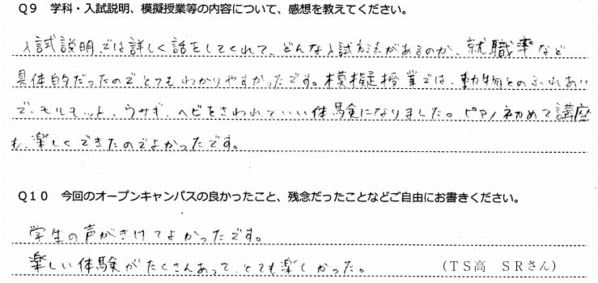 Q9 学科・入試説明、模擬授業等の内容について、感想を教えてください。
入試説明では詳しく話をしてくれて、どんな入試方法があるのか、就職率など
具体的だったのでとてもわかりやすかったです。模擬授業では、動物とのふれあい
で、モルモット、ウサギ、ヘビをさわれていい体験になりました。ピアノ初めて講座
も、楽しくできたのでよかったです。
Q10 今回のオープンキャンパスの良かったこと、残念だったことなどご自由にお書きください。
学生の声がきけてよかったです。
楽しい体験がたくさんあって、とても楽しかった。 (TS高 SRさん)